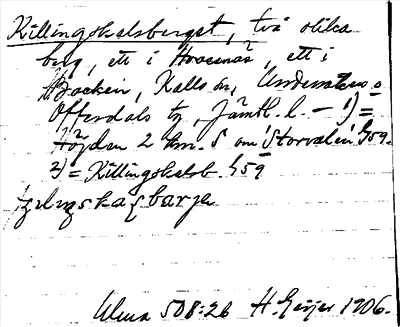 Killingskalsberget, två olika
berg, ett i Huseneås, ett i
Backen, Kalls sn, Undersåkers o
Offerdals tg, Jämtl. l. – 1) =
Höjden 2 km. S om Storvalen G59.
2) = Killingskalsb. G59
Ulma 508:26 H. Geijer 1906.